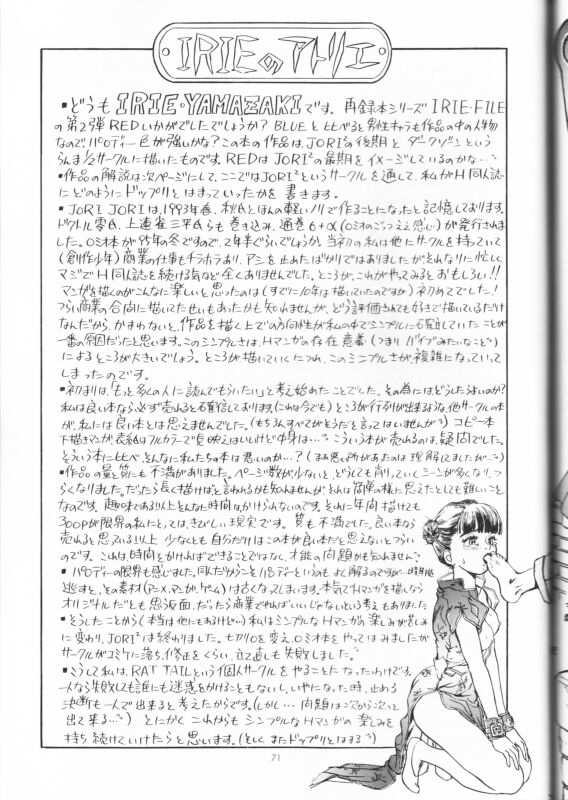 IRIEのアトリエ
▪どうもIRIE・YAMAZAKIです。再録本シリーズIRIE-FILE
の第2弾REDいかがでしたでしょうか?BLUEと比べると男性キャラも作品の中の人物
なのでパロディー色が強いかな?この本の作品は、JORI²の後期と
らんま½サークルに描いたものです。REDはJORI²の最期をイメージしているのかな…
▪作品の解説は次ページにして、ここではJORI²というサークルを通して、私がH同人誌
にどのようにドップリとはまっていったかを書きます。
▪JORI JORIは、1993年春、ほんの軽いノリで作ることになったと記憶しております。
ドクトル零氏、上連雀三平氏らも巻き込み、通巻6+α
が発行されました。
(創作少年)商業の仕事もチラホラあり、
マジでH同人誌を続ける気など全くありませんでした。ところが、これがやってみるとおもしろい!!
マンガを描くのがこんなに楽しいと思ったのは(すでに10年は描いていたのですが)初めてでした!
つらい商業の合間に描いてたせいもあったかも知れませんが、どう評価されても好きで描いているだけ
なんだから、かまわないと、作品を描く上での方向性が私の中でシンプルに
一番の原因だったと思います。このシンプルさは、Hマンガの存在意義
によるところが大きいでしょう。ところが描いていくにつれ、このシンプルさが複雑になっていって
しまったのです。
▪初まりは、「もっと多くの人に読んでもらいたい」と考え始めたことでした。その為にはどうしたらよいのか?
私は良い本なら必ず売れると確信しております。(これは今でも)ところが行列が出来るような他サークルの本
が、私には良い本とは思えませんでした。(もちろんすべてがそうだと言ってはいませんが)コピー本
下描きマンガ、表紙はフルカラーで見映えはいいけど中身は…こういう本が売れるのは、疑問でした。
そういう本に比べ、そんなに私たちの本は悪いのか…?
▪作品の量と質にも不満がありました。ページ数が少ないと、どうしても削っていくシーンが多くなり、つ
らくなりました。だったら長く描けばと言われるかも知れませんが、それは簡単な様に思えたとしても難しいこと
なのです。趣味である以上そんなに時間はかけられないのです。それに年間描けても
300Pが限界の私にとっては、きびしい現実です。質も不満でした。良い本なら
売れると思っている以上、少なくとも自分だけはこの本が良い本だと思えないとつらい
のです。これは、時間をかければできることではなく、才能の問題かも知れません?
▪パロディーの限界も感じました。同人だけツライことパロディーというのもよく解るのですが…時期
逃すと、その素材(アニメ、マンガ、ゲーム)は古くなってしまいます。本気でHマンガを描くなら
オリジナルだとも思う反面、だったら商業でやればいいじゃないという考えもありました
▪そうしたことから(本当は他にもあるけど〜)私はシンプルなHマンガの楽しみが苦しみ
に変わり、JORI²は終わりました。七カリロを変え、ロミオ本をやってはみましたが
サークルがコミケに落ち、修正をくらい、立て直しも失敗しました。
▪こうして私は、RAT TAILという個人サークルをやることになったわけです。
一人なら失敗しても誰にも迷惑をかけることもないし、いやになった時、止める
決断も一人で出来ると考えたからです。(しかし…問題は次から次へと
出て来る…)とにかくこれからもシンプルなHマンガの楽しみを
持ち続けていけたらと思います。(としてまたドップリとはまる)
71